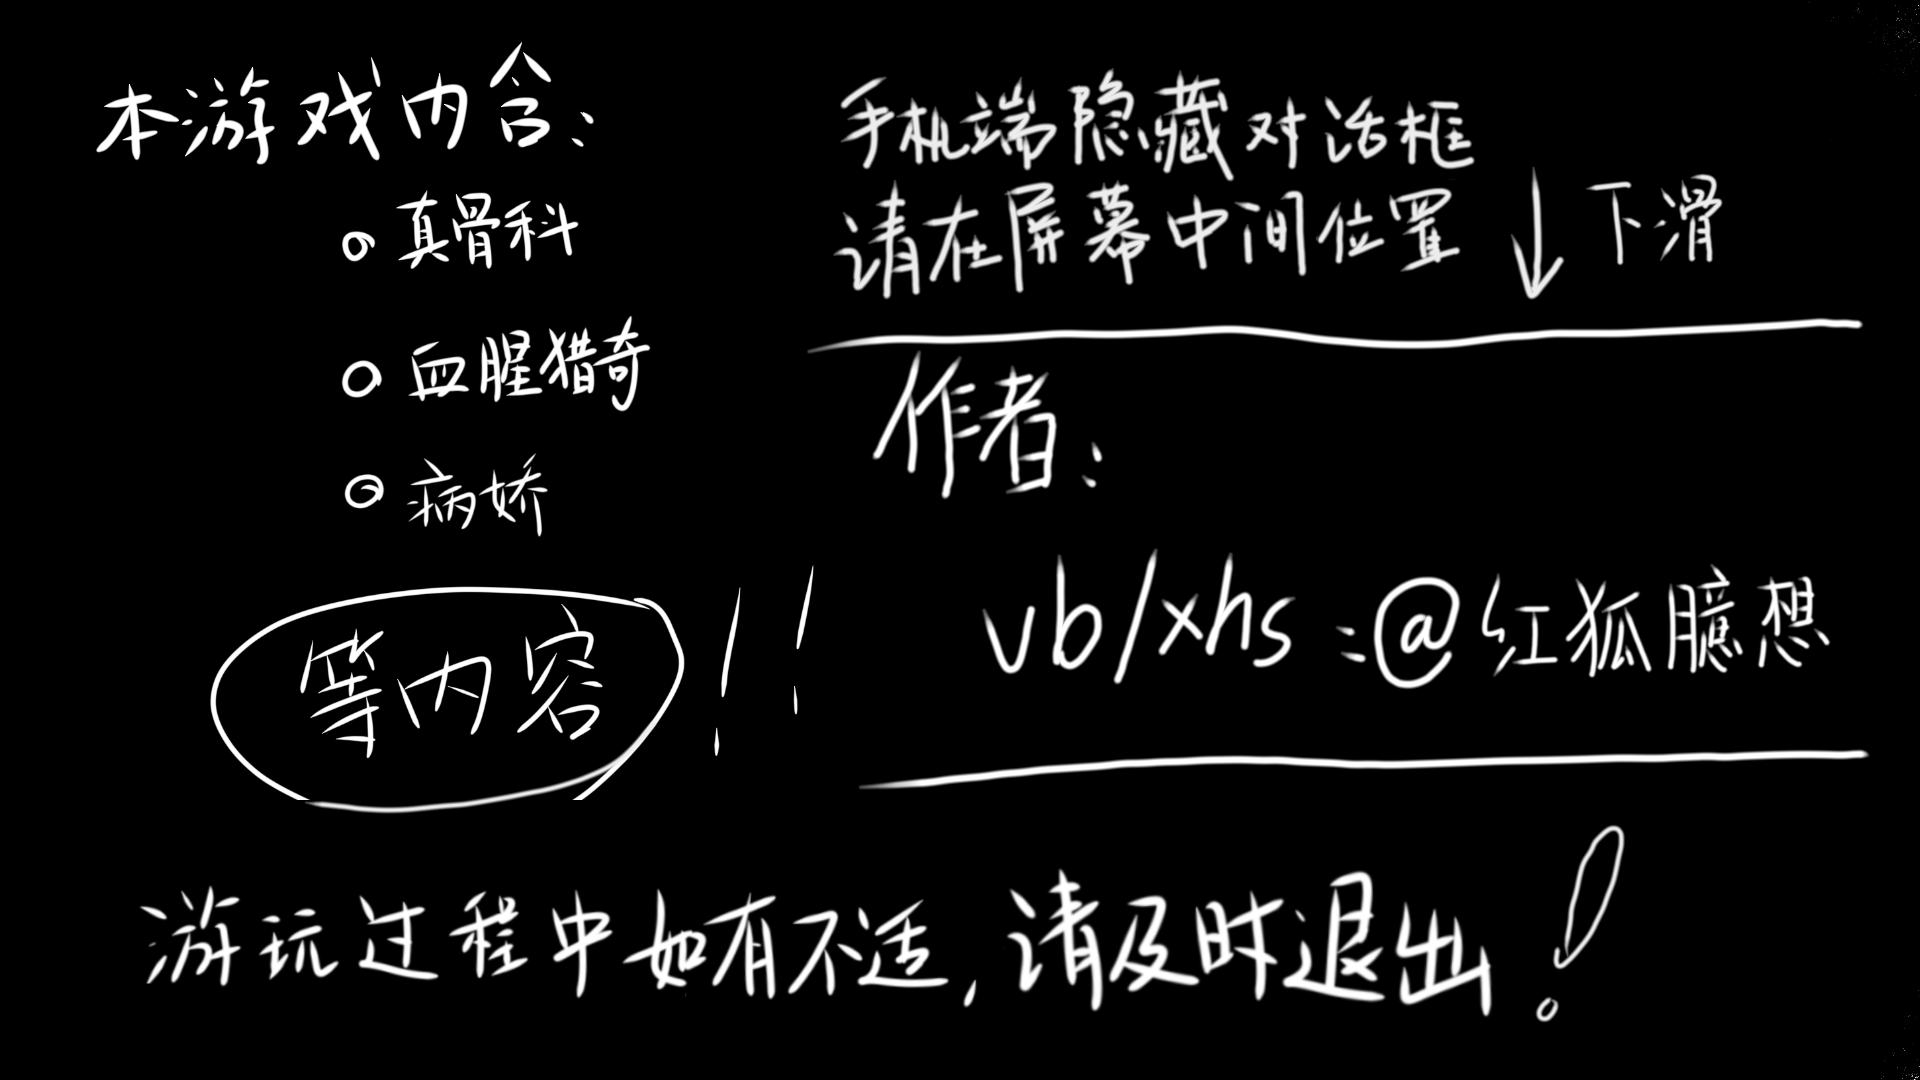 本游戏内含：
真骨科
血腥猎奇
病娇
等内容！！
手机端隐藏对话框
请在屏幕中间位置↓下滑
作者：
vb/xhs：@红狐臆想
游玩过程中如有不适，请及时退出！